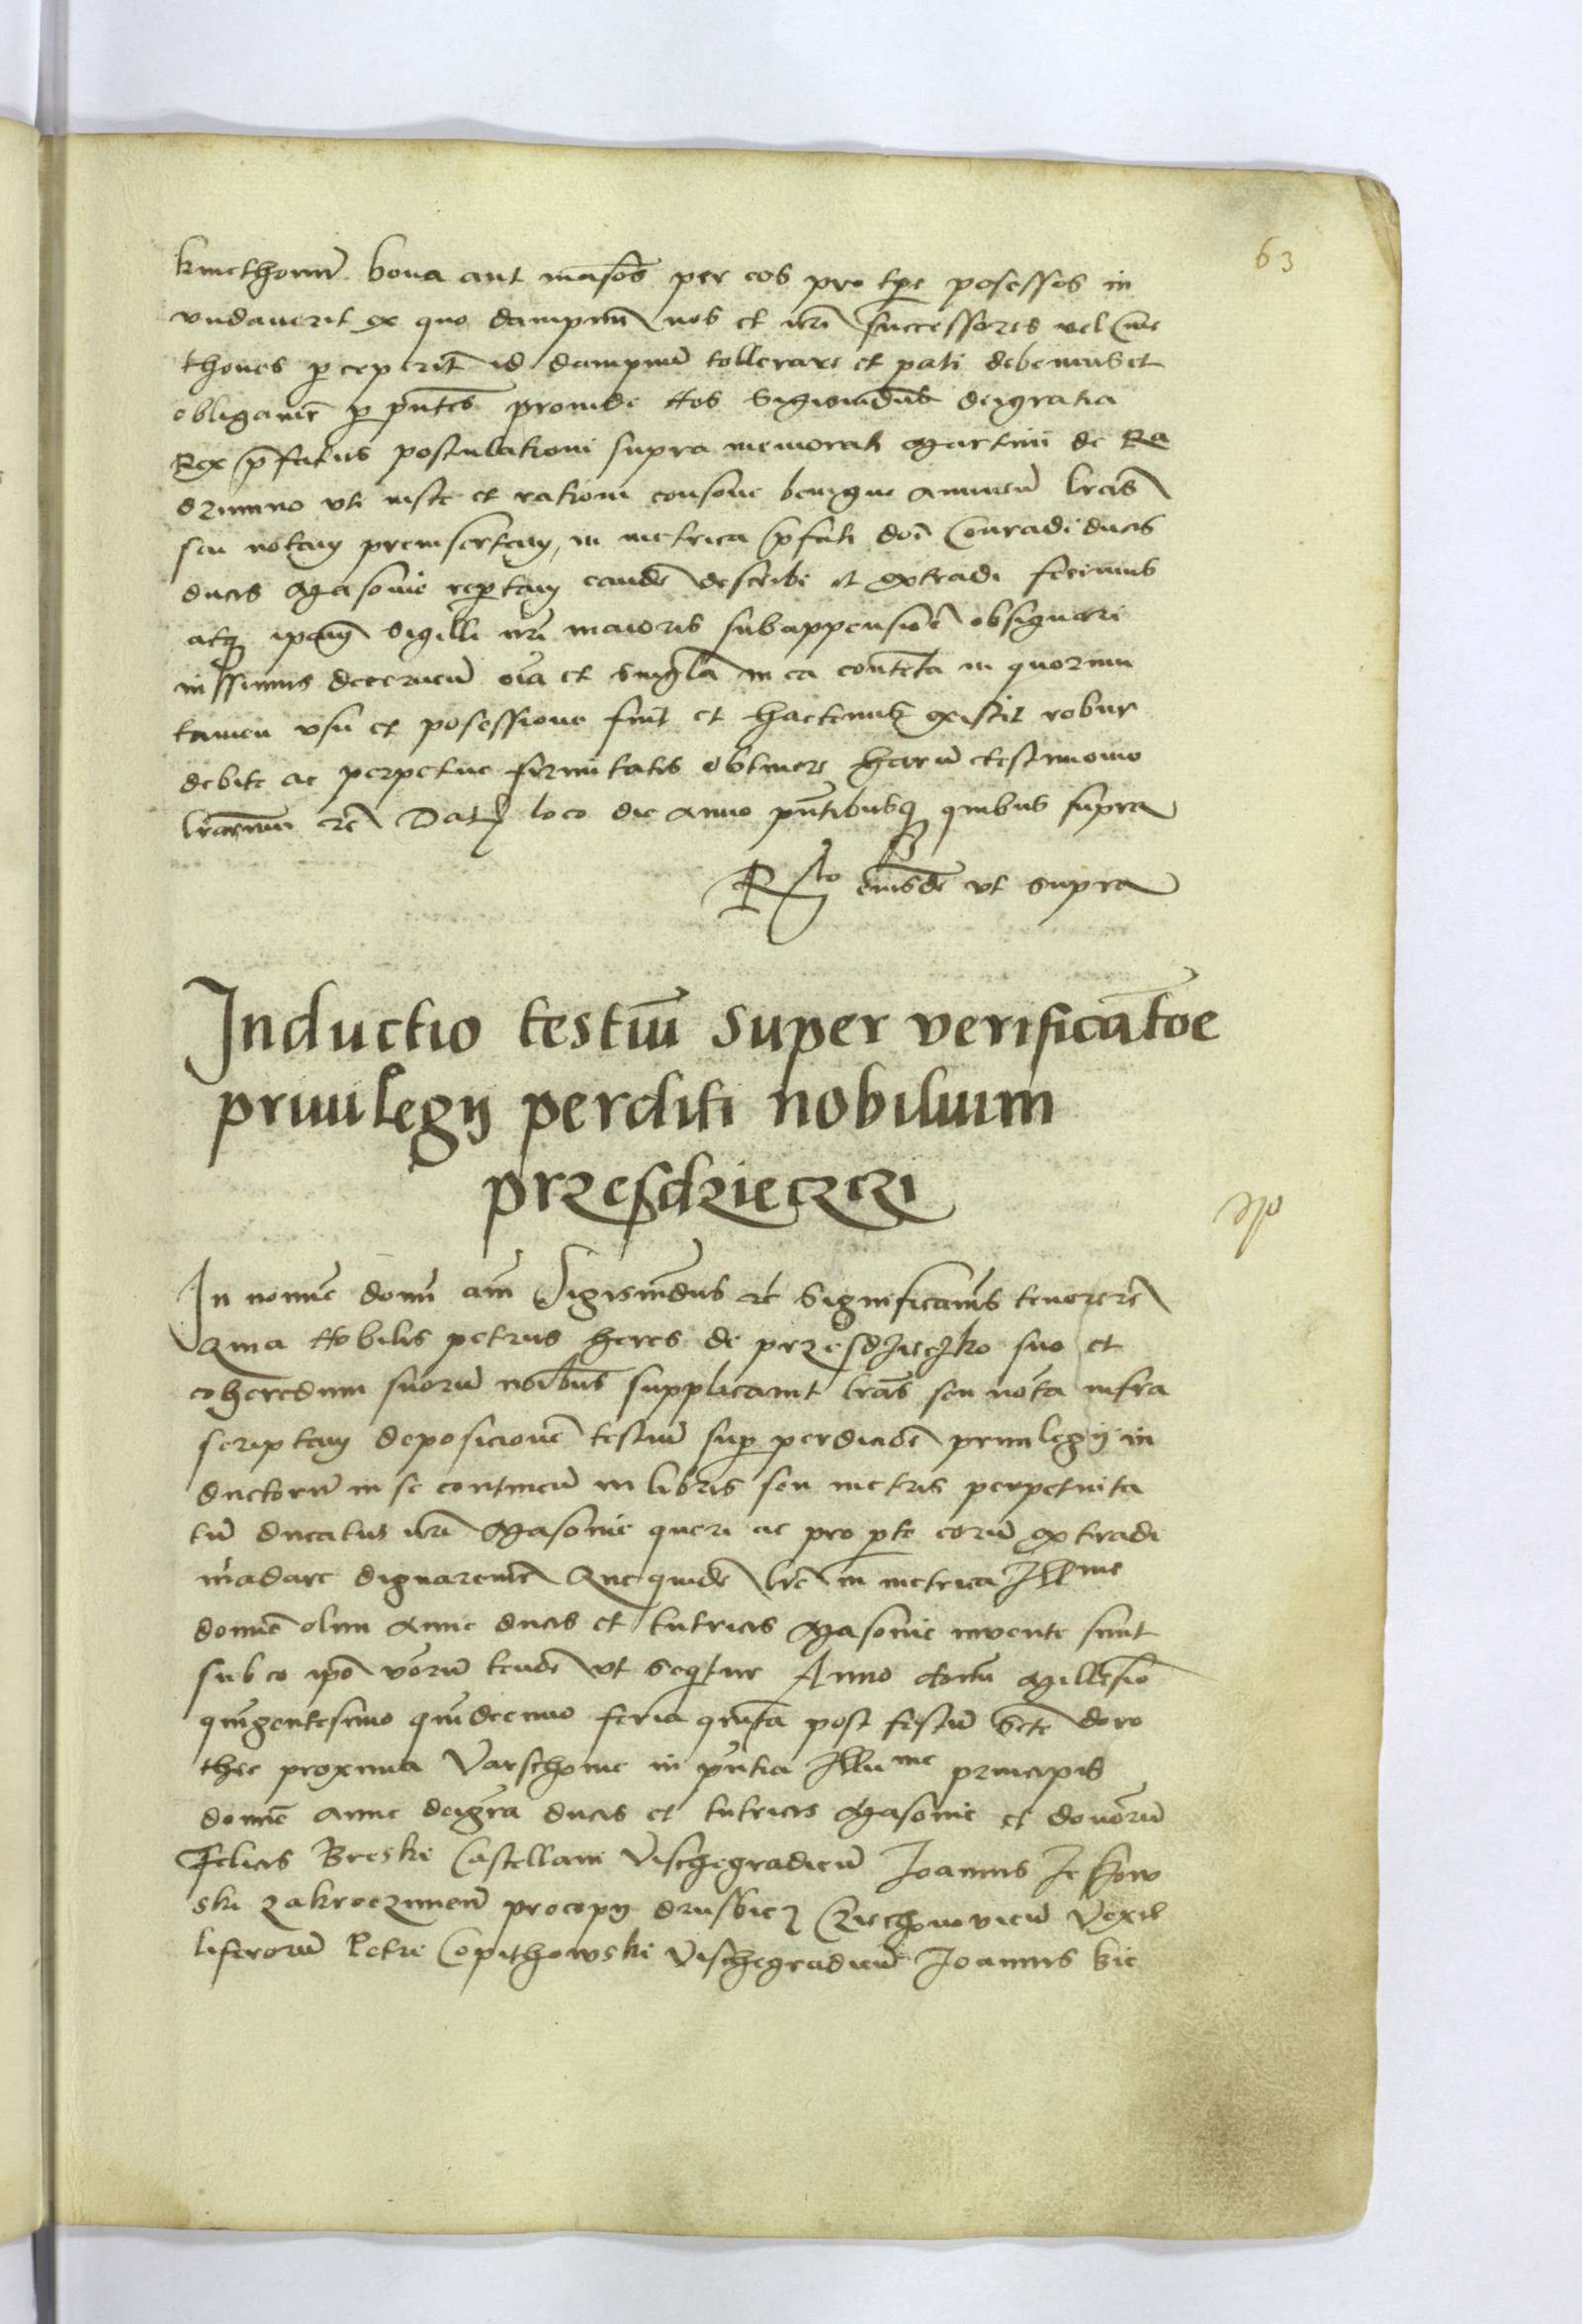 63
kmethonum bona aut mãsos per eos pro tpe posessos in
undauerit ex quo dampnũ nos et nrĩ successores uel Cme
thones pceperĩt id dampnũ tollerare et pati debemus et
obligamr̃ p pñtes proinde Nos Sigismũdus dei gratia
Rex p̃fatus postulationi supra memorati Martini de Ra
dzimino uti iuste et rationi consone benigne annueñ lrãs
seu notam preinsertam, in metrica p̃fati doñi Conradi ducis
ducis Masouie reptam eandẽ describi et extradi fecimus
atq ipam sigilli nrĩ maioris subappensiõe obsignari
iussimus decerneñ oĩa et singla in ea contẽta in quorum
tamen usu et posessione sunt et hactenus existit robur
debite ac perpetue firmitatis obtinere harũ testimonio
lrãrum etc̃ Dat loco die anno pñtibusq quibus supra
Rlo eiusdẽ ut supra
Inductio testiũ super verificatõe
priuilegij perditi nobilium
przesdzieczczi
In nomĩe domĩ amẽ Sigismũdus etc̃ significamus tenore etc̃
Quia Nobilis petrus heres de przesdzieczko suo et
coheredum suorũ noĩbus supplicauit lrãs seu nota infra
scriptam deposicionẽ testiũ sup perdiciõe priuilegij in
ductorũ in se contineñ in libris seu metris perpetuita
tũ ducatus nrĩ Masouie queri ac pro pte eorũ extradi
mãdare dignaremr̃ Que quidẽ lrẽ in metrica Illme
domiẽ olim Anne ducis et tutricis Masouie invente sunt
sub eo ipõ verũ tenõe ut sequitur Anno domĩ Millesiõ
quingentesimo quindecimo feria quinta post festũ Scte doro
thee proxima Varschouie in pñtia Illume principis
domiẽ anne dei grã ducis et tutricis Masouie et donorũ
Felicis Breski Castellani Vischegradieñ Joannis Je
ski zakroczimeñ procopij drusbicz Czechonovieñ Vexil
liferorũ Petri Copithowski Vischegradieñ Joannis kie